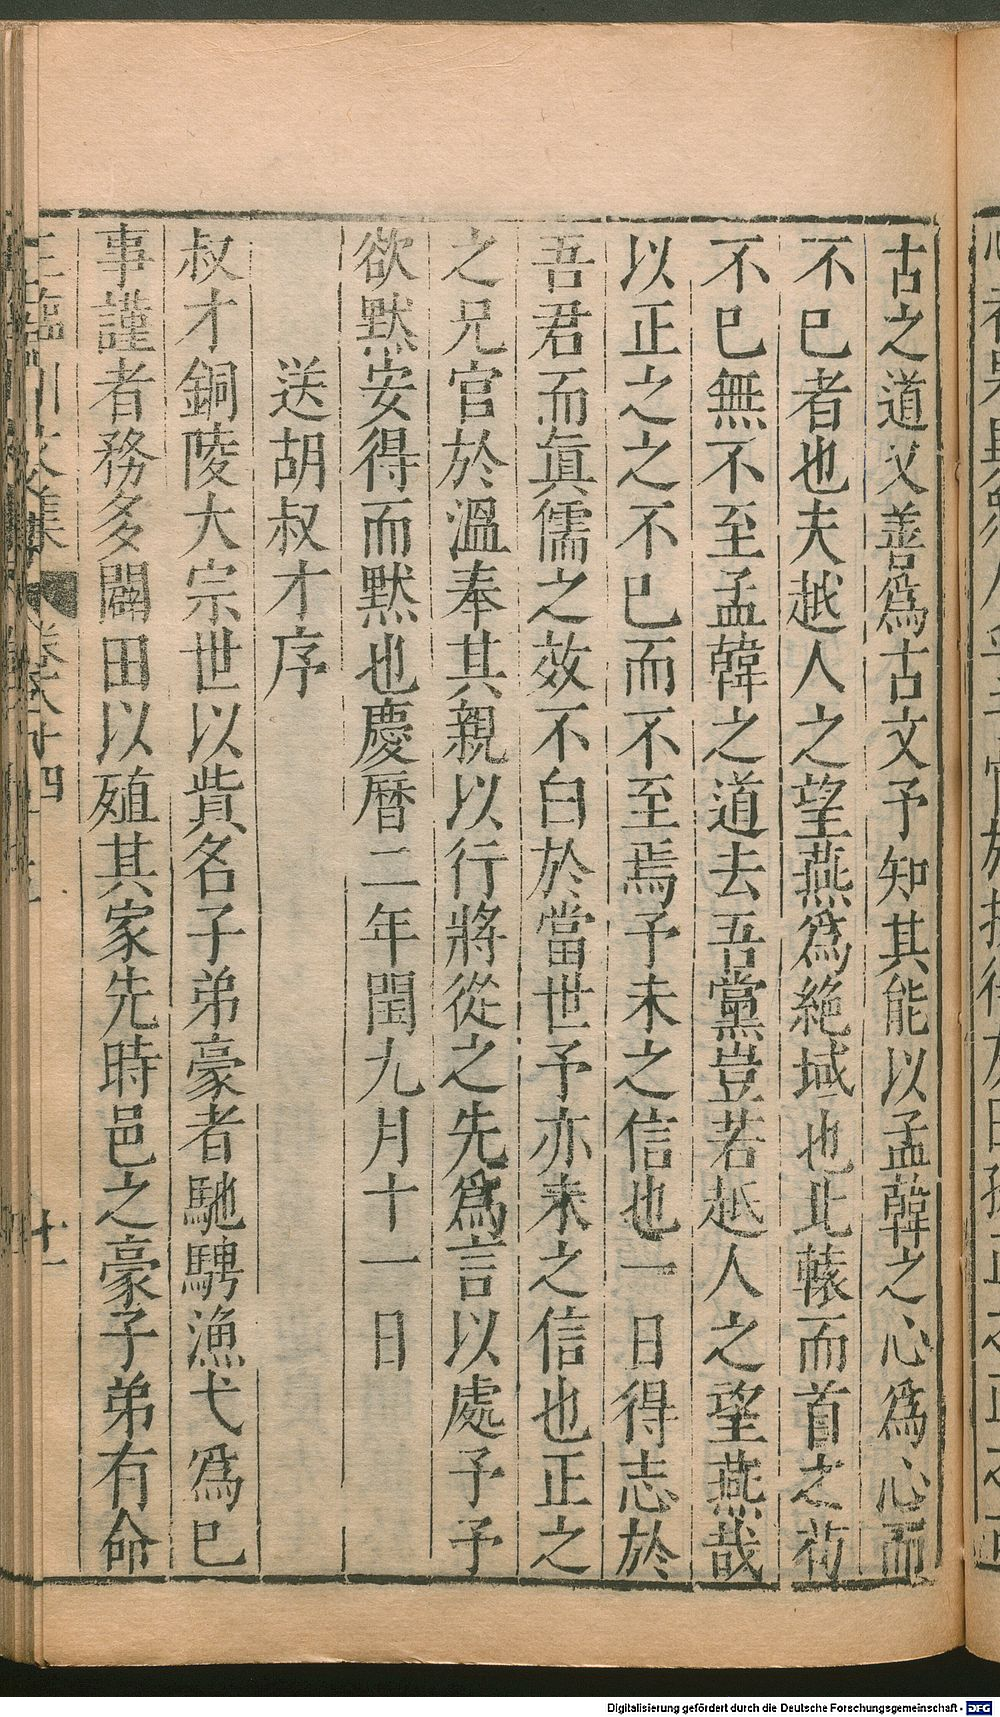 古之道又善爲古文予知其能以孟韓之心爲心而
不已者也夫越人之望燕爲絶域也北轅而首之茍
不已無不至孟韓之道去吾黨豈若越人之望燕哉
以正之之不已而不至焉予未之信也一日得志於
吾君而眞儒之效不白於當世予亦未之信也正之
之兄官於溫奉其親以行將從之先爲言以處予予
欲默安得而默也慶曆二年閏九月十一日
送胡叔才序
叔才銅陵大宗世以貲名子弟豪者馳騁漁弋爲已
事謹者務多闢田以殖其家先時邑之豪子弟有命
王臨川文集 卷八十四 十一
Digitalisierung gefördert durch die Deutsche Forschungsgemeinschaft - DFG